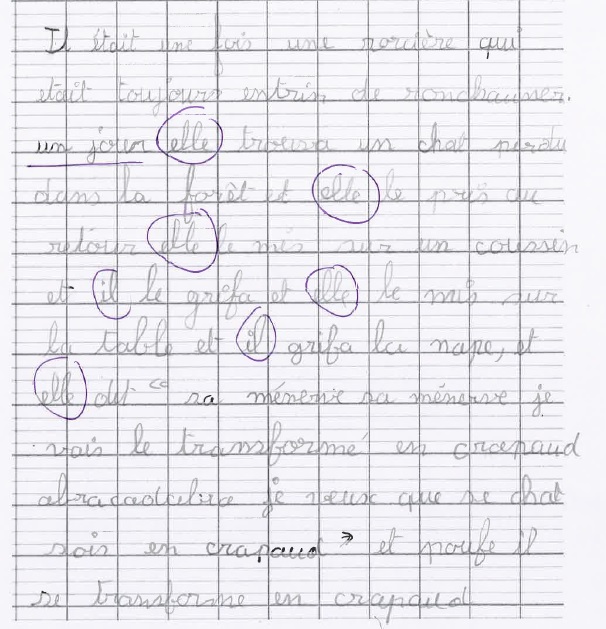 Il était une fois une sorcière qui
était toujours entrin de ronchauner.
un jour elle trouva un chat perdu
dans la forêt et elle le pris au
retour elle le mis sur un coussin
et il le grifa et elle le mis sur
la table et il grifa la nape, et
elle dit " sa ménerve sa ménerve je
vais le transformé en crapaud
abracadabra je veux que se chat
sois en crapaud " et poufe il
se transforme en crapaud